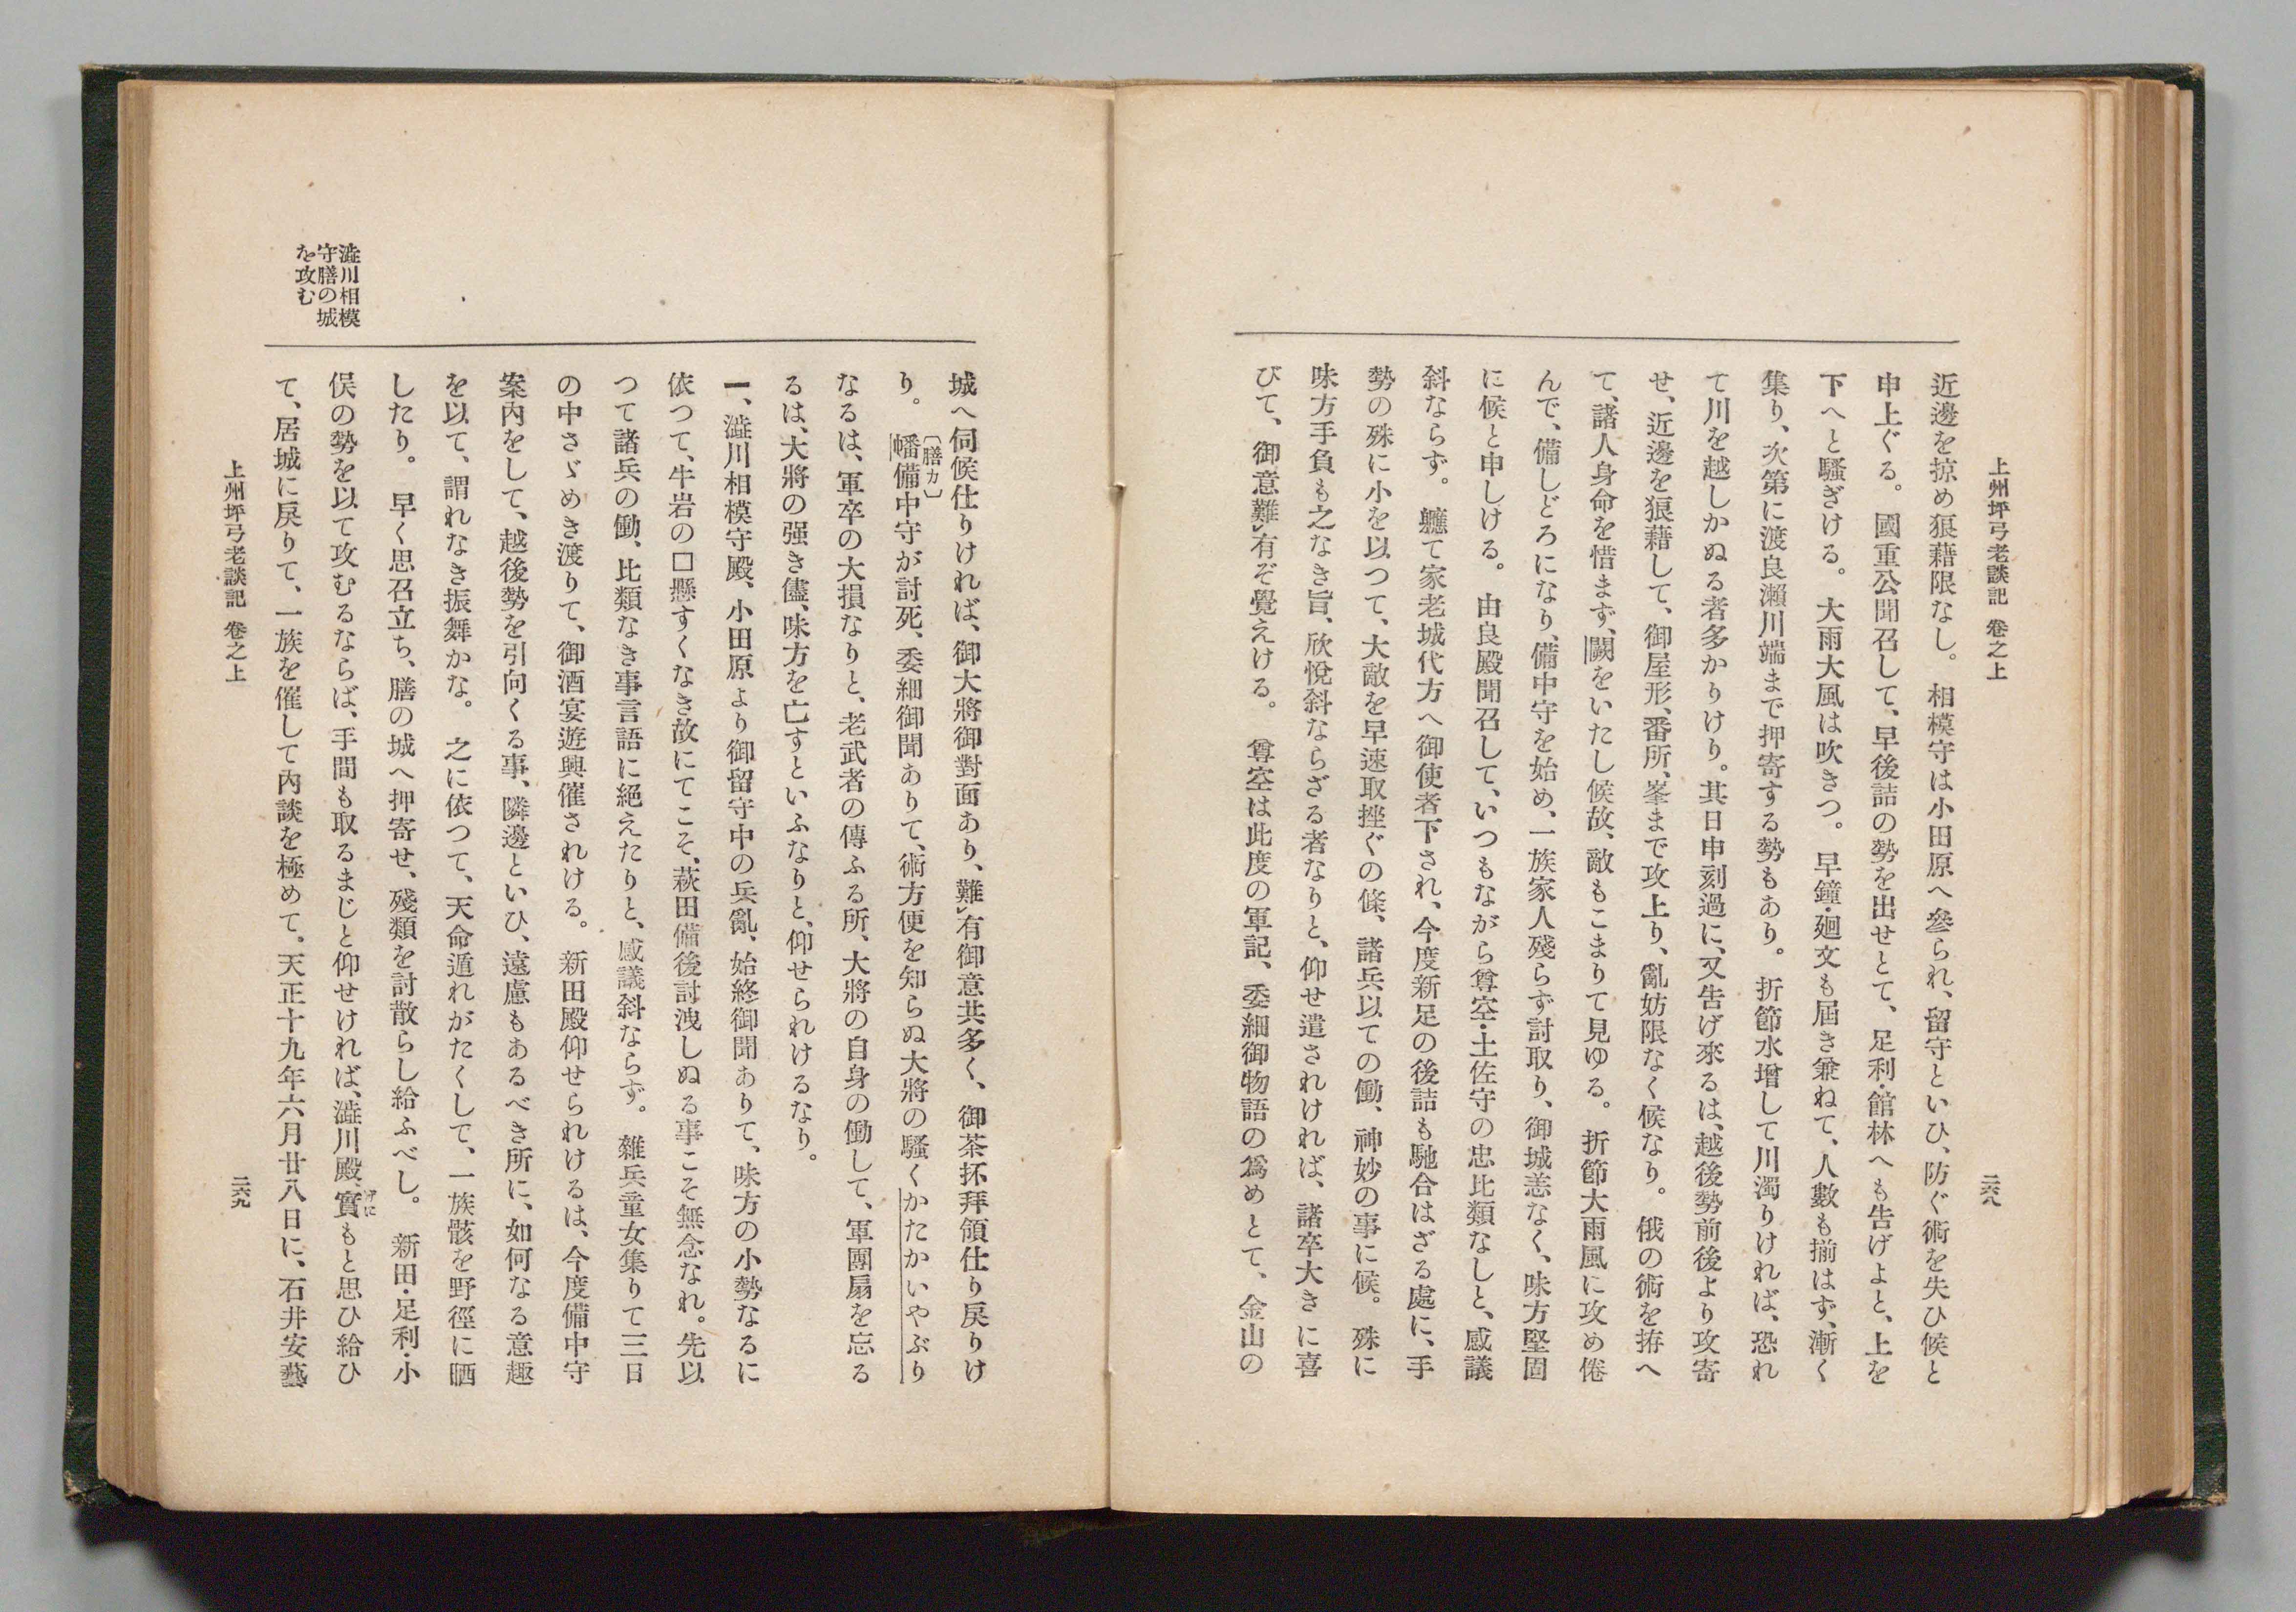 上州坪弓老談記 卷之上
二六八
近邊を掠め狼藉限なし。相模守は小田原へ參られ、留守といひ、防ぐ術を失ひ候と
申上ぐる。國重公聞召して、早後詰の勢を出せとて、足利・館林へも告げよと、上を
下へと騷ぎける。大雨大風は吹きつ。早鐘・廻文も屆き兼ねて、人數も揃はず、漸く
集り、次第に渡良瀨川端まで押寄する勢もあり。折節水增して川濁りければ、恐れ
て川を越しかぬる者多かりけり。其日申刻過に、又告げ來るは、越後勢前後より攻寄
せ、近邊を狼藉して、御屋形、番所、峯まで攻上り、亂妨限なく候なり。俄の術を拵へ
て、諸人身命を惜まず、鬪をいたし候故、敵もこまりて見ゆる。折節大雨風に攻め倦
んで、備しどろになり、備中守を始め、一族家人殘らず討取り、御城恙なく、味方堅固
に候と申しける。由良殿聞召して、いつもながら尊空・土佐守の忠比類なしと、感議
斜ならず。軈て家老城代方へ御使者下され、今度新足の後詰も馳合はざる處に、手
勢の殊に小を以つて、大敵を早速取挫ぐの條、諸兵以ての働、神妙の事に候。殊に
味方手負も之なき旨、欣悅斜ならざる者なりと、仰せ遣されければ、諸卒大きに喜
びて、御意難レ有ぞ覺えける。尊空は此度の軍記、委細御物語の爲めとて、金山の
城へ伺候仕りければ、御大將御對面あり、難レ有御意共多く、御茶抔拜領仕り戾りけ
り。幡〔膳カ〕備中守が討死、委細御聞ありて、術方便を知らぬ大將の騷くかたかいやぶり
なるは、軍卒の大損なりと、老武者の傳ふる所、大將の自身の働して、軍團扇を忘る
るは、大將の强き儘、味方を亡すといふなりと、仰せられけるなり。
澁川相模
守膳の城
を攻む
一、澁川相模守殿、小田原より御留守中の兵亂、始終御聞ありて、味方の小勢なるに
依つて、牛岩の□懸すくなき故にてこそ、萩田備後討洩しぬる事こそ無念なれ。先以
つて諸兵の働、比類なき事言語に絕えたりと、感議斜ならず。雜兵童女集りて三日
の中さゞめき渡りて、御酒宴遊興催されける。新田殿仰せられけるは、今度備中守
案內をして、越後勢を引向くる事、隣邊といひ、遠慮もあるべき所に、如何なる意趣
を以て、謂れなき振舞かな。之に依つて、天命遁れがたくして、一族骸を野徑に晒
したり。早く思召立ち、膳の城へ押寄せ、殘類を討散らし給ふべし。新田・足利・小
俣の勢を以て攻むるならば、手間も取るまじと仰せければ、澁川殿、實げにもと思ひ給ひ
て、居城に戾りて、一族を催して內談を極めて。天正十九年六月廿八日に、石井安藝
上州坪弓老談記 卷之上
二六九